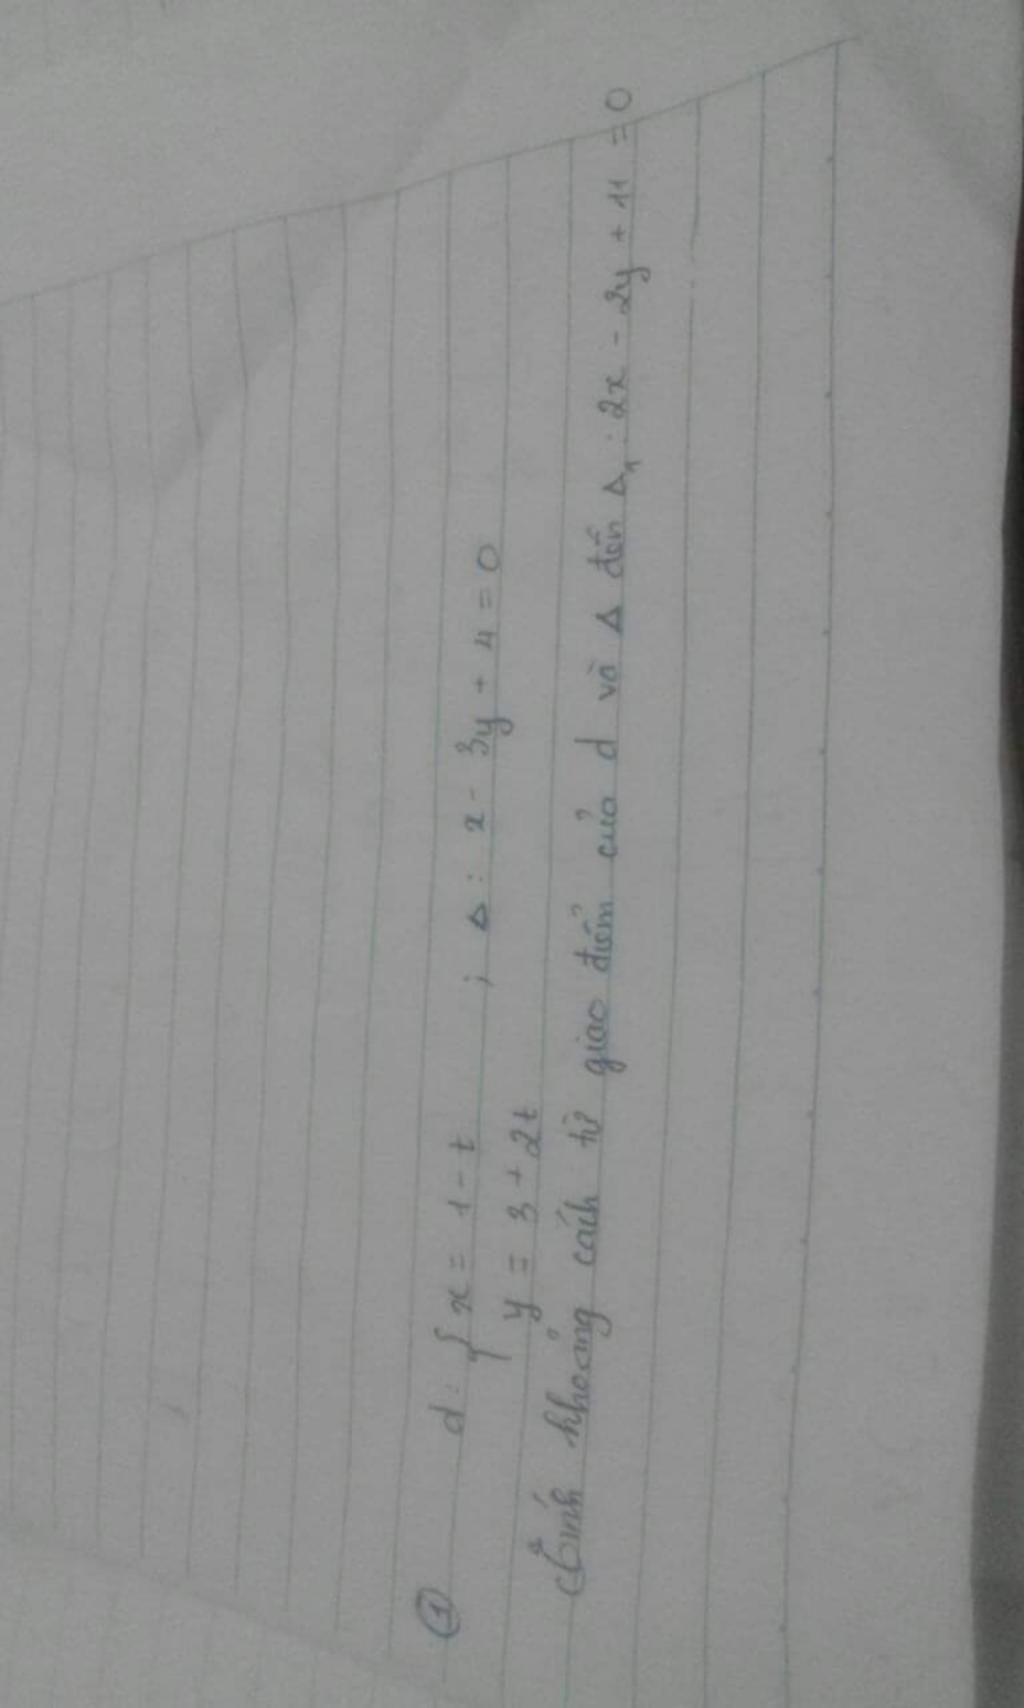 ① d: { x = 1 - t ; Δ: x - 3y + 4 = 0
y = 3 + 2t
Tính khoảng cách từ giao điểm của d và Δ đến Δ₁: 2x - 2y + 11 = 0